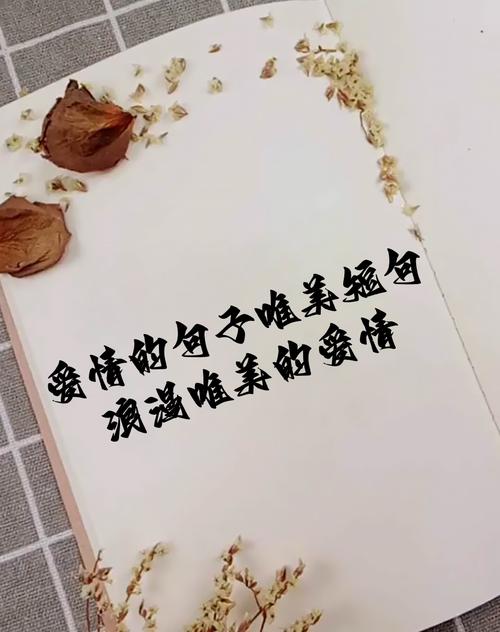 爱情的句子唯美短句
浪漫唯美的爱情